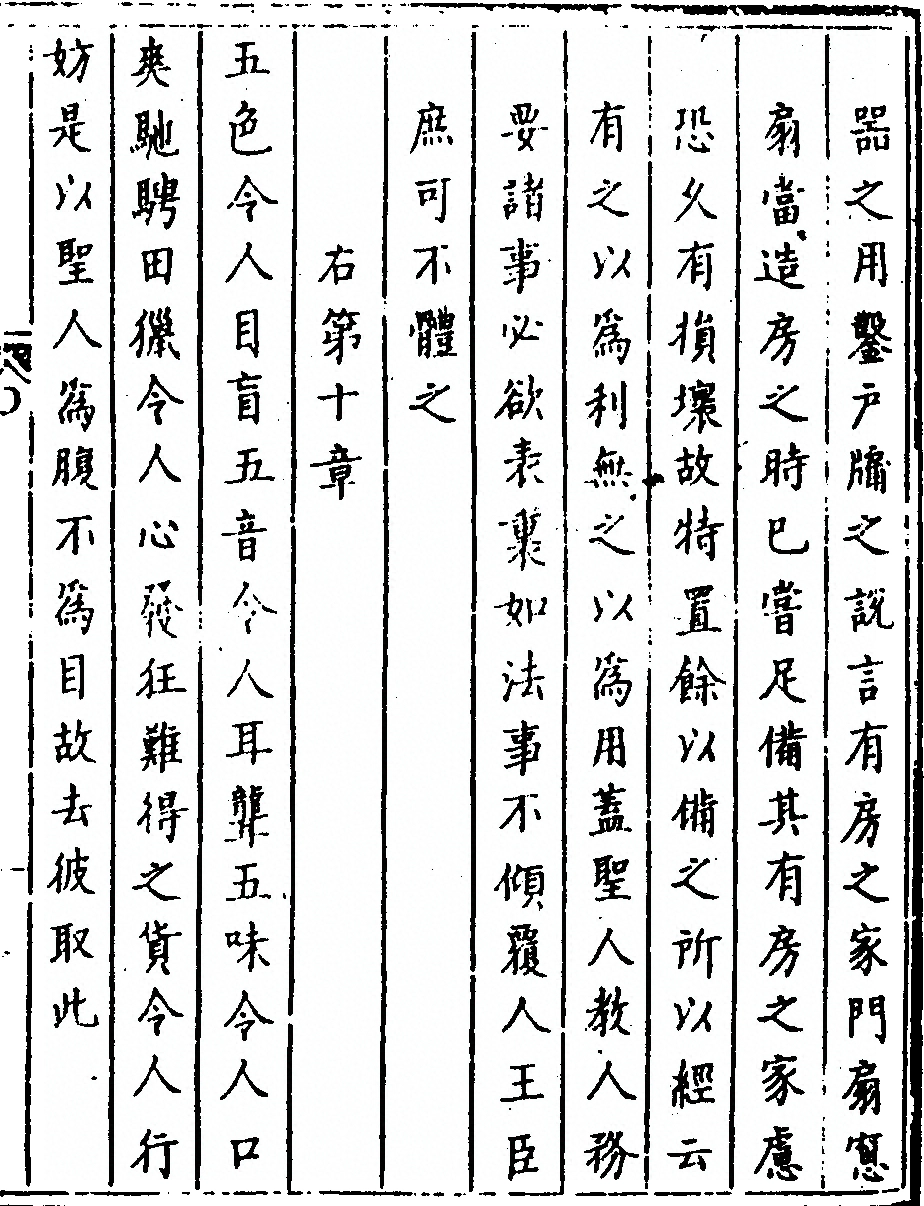 器之用鑿戶牖之說言有房之家門扇窓
扇當造房之時已嘗足備其有房之家慮
恐久有損壞故特置餘以備之所以經云
有之以為利無之以為用蓋聖人教人務
要諸事必欲表裏如法事不傾覆人王臣
庶可不體之
右第十章
五色令人目盲五音令人耳聾五味令人口
爽馳騁田獵令人心發狂難得之貨令人行
妨是以聖人為腹不為目故去彼取此